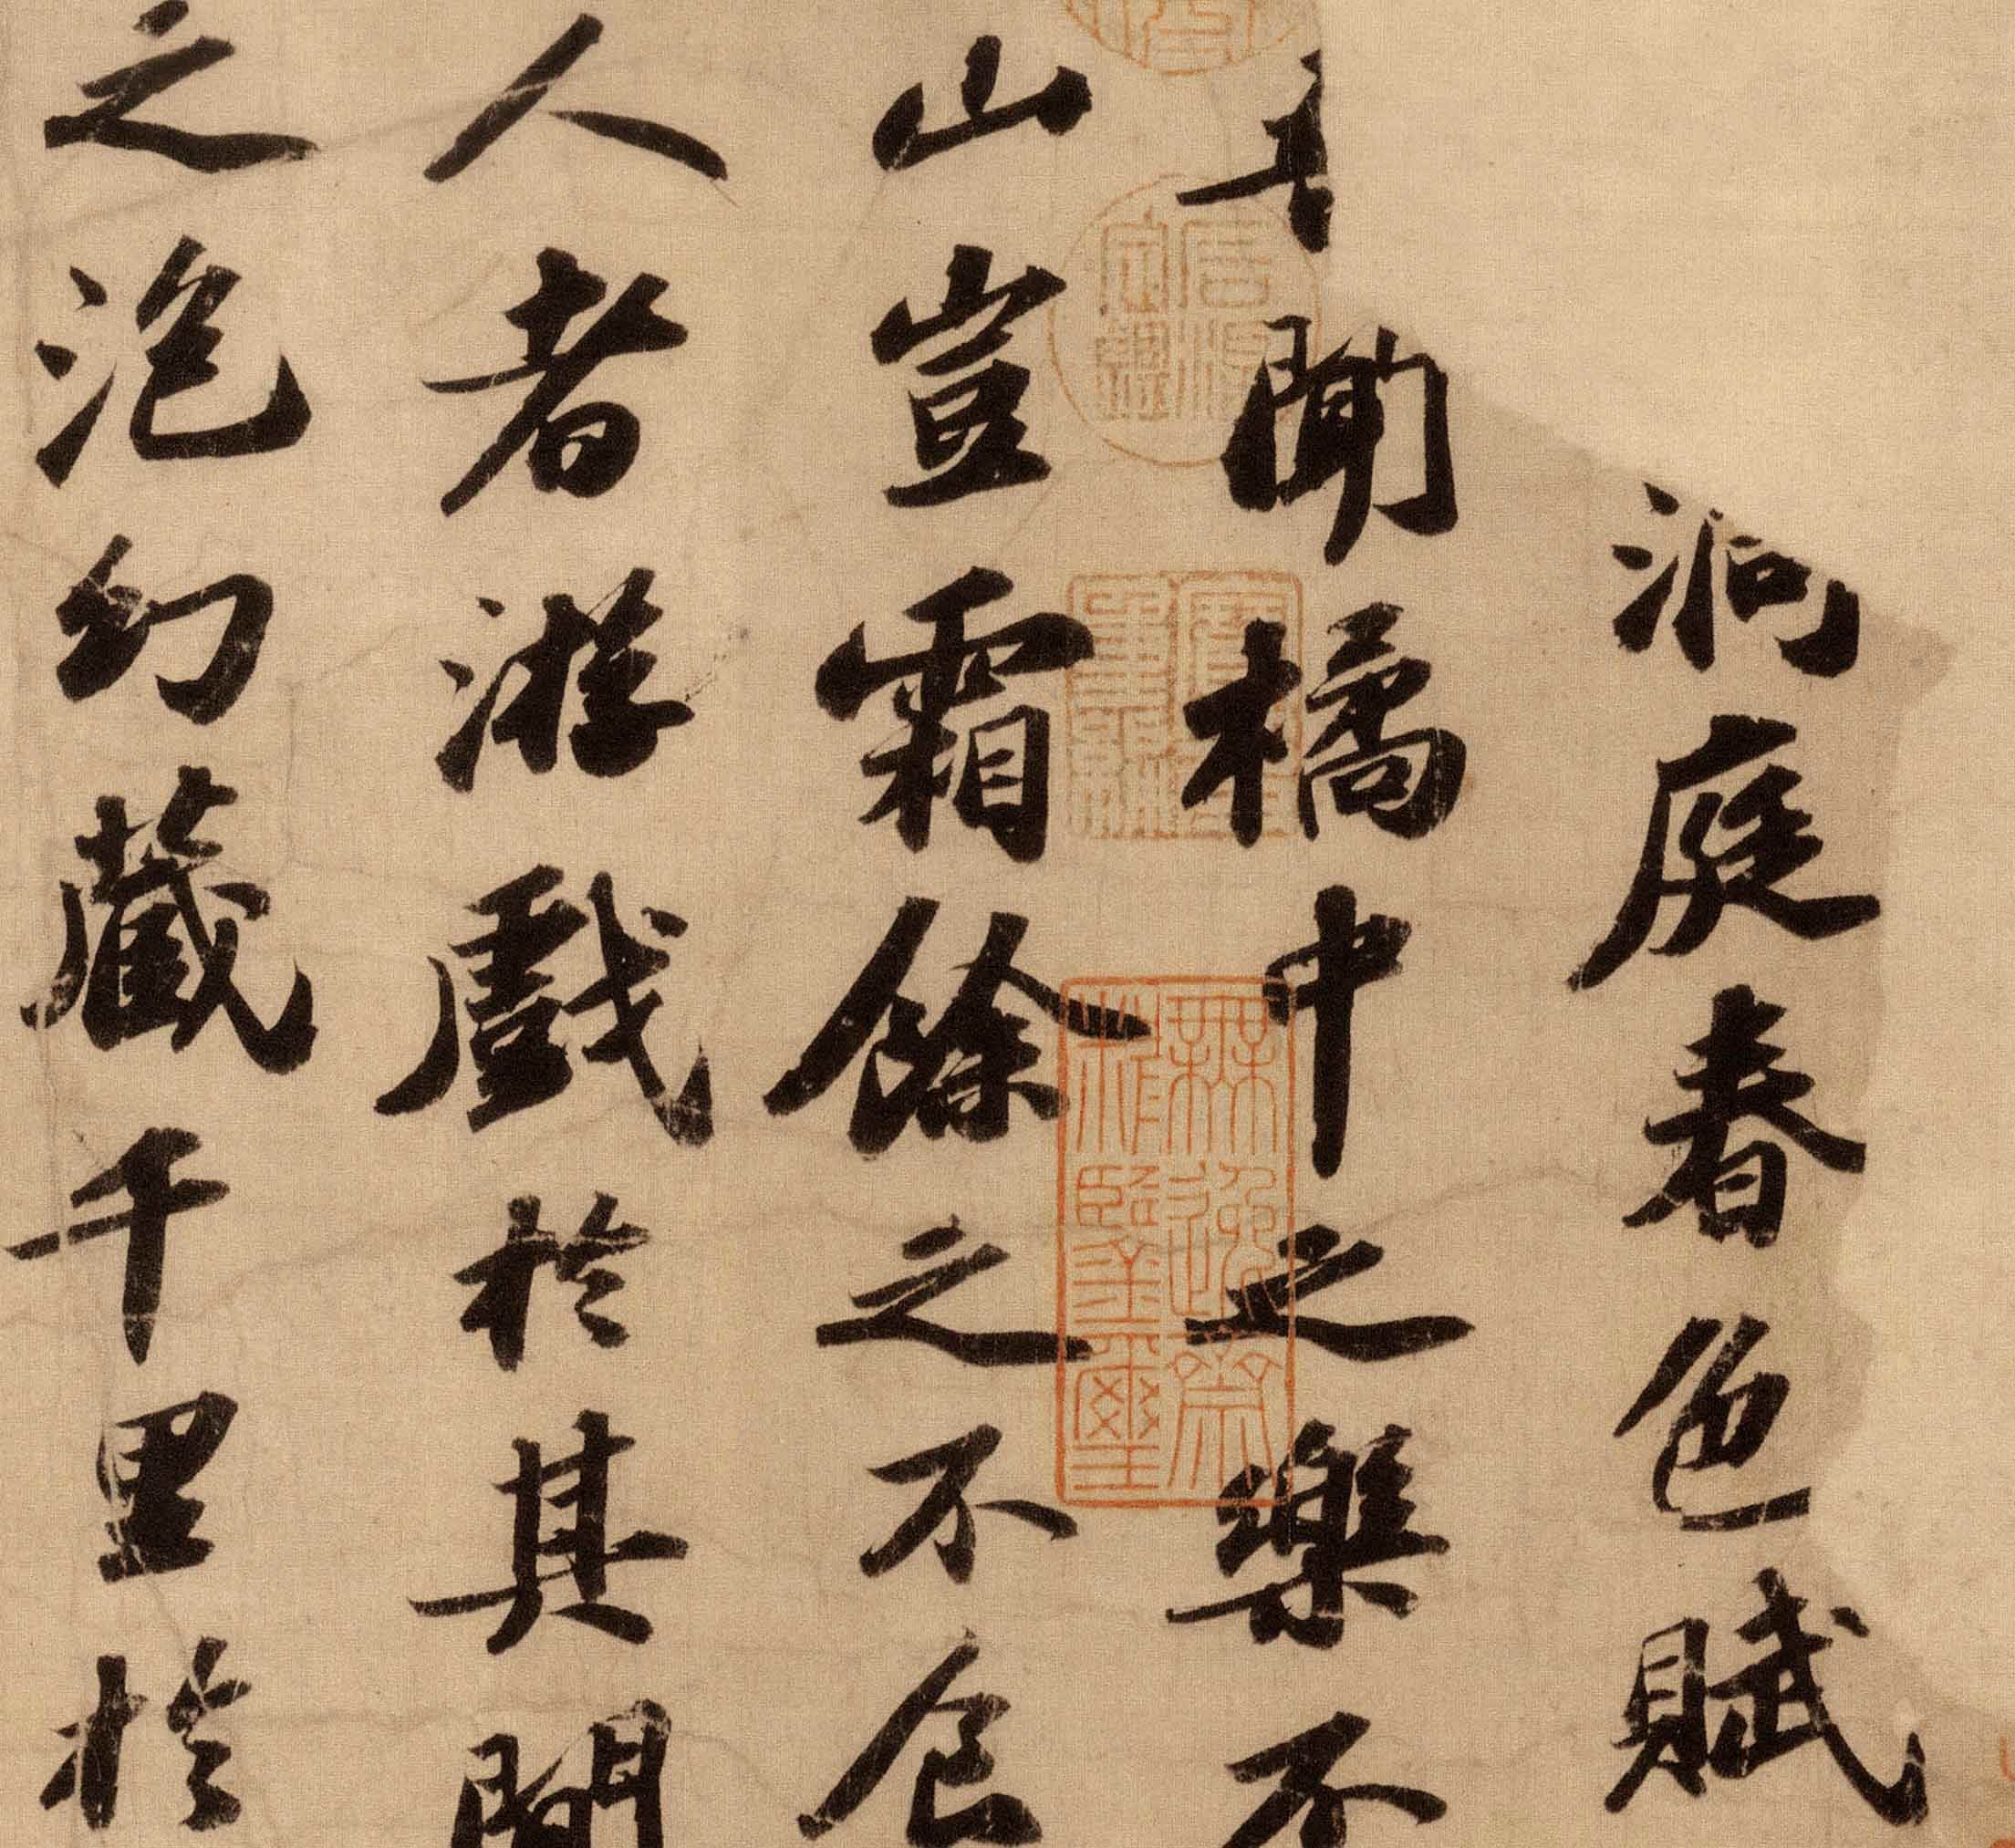 洞庭春色賦
聞橘中之樂不
山豈霜餘之不食
人者游戲於其間
之泡幻藏千里於